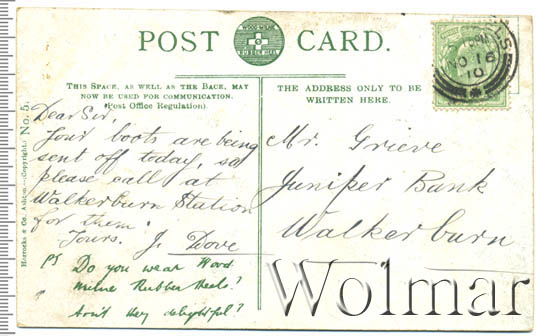 POST CARD.
WOOD-MILNE
RUBBER HEEL
THIS SPACE, AS WELL AS THE BACK, MAY
NOW BE USED FOR COMMUNICATION.
(Post Office Regulation).
THE ADDRESS ONLY TO BE
WRITTEN HERE.
NO 16
10
Dear Sir,
Your boots are being
sent off today, so
please call at
Walkerburn Station
for them.
Yours. J. Dove
PS Do you wear Wood
milne Rubber Heels?
Ain't they delightful?
Mr. Grieve
Juniper Bank
Walkerburn
(Copyright.) No. 5.
Wolmar